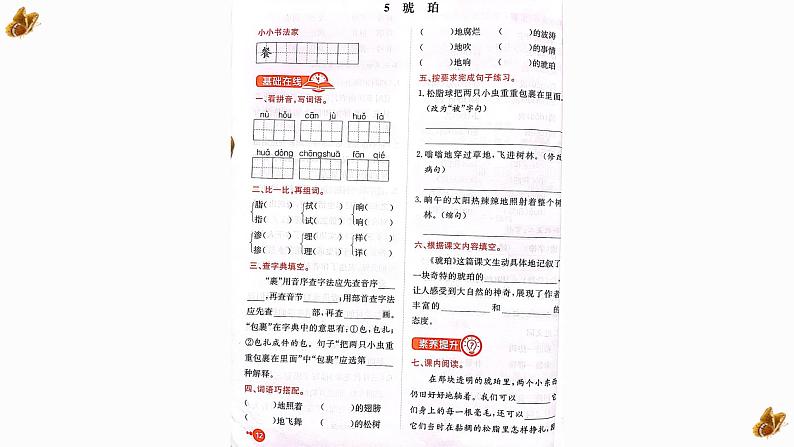 5 琥 珀
小小书法家
餐
基础在线
一、看拼音,写词语。
nù hǒu cān jù huǒ là
huá dòng chōngshuā fān qié
二、比一比,再组词。
脂( ) 拭( ) 晌( )
指( ) 试( ) 响( )
渗( ) 埋( ) 样( )
掺( ) 理( ) 详( )
三、查字典填空。
“裹”用音序查字法应先查音序
,再查音节 ;用部首查字法
应先查 部,再查 画。
“包裹”在字典中的意思有:①包,包扎;
②包扎成件的包。句子“把两只小虫重
重包裹在里面”中“包裹”应选第
种解释。
四、词语巧搭配。
( )地照着 ( )的翅膀
( )地飞舞 ( )的松树
12
( )地腐烂 ( )的波涛
( )地吹 ( )的事情
( )地响 ( )的琥珀
五、按要求完成句子练习。
1.松脂球把两只小虫重重包裹在里面。
(改为“被”字句)
2.嗡嗡地穿过草地,飞进树林。(修改
病句)
3.晌午的太阳热辣辣地照射着整个树
林。(缩句)
六、根据课文内容填空。
《琥珀》这篇课文生动具体地记叙了
一块奇特的琥珀的 ,
让人感受到大自然的神奇,展现了作者
丰富的 和 的
态度。
素养提升
七、课内阅读。
在那块透明的琥珀里,两个小东西
仍旧好好地躺着。我们可以 它
们身上的每一根毫毛,还可以
它们当时在黏稠的松脂里怎样挣扎,